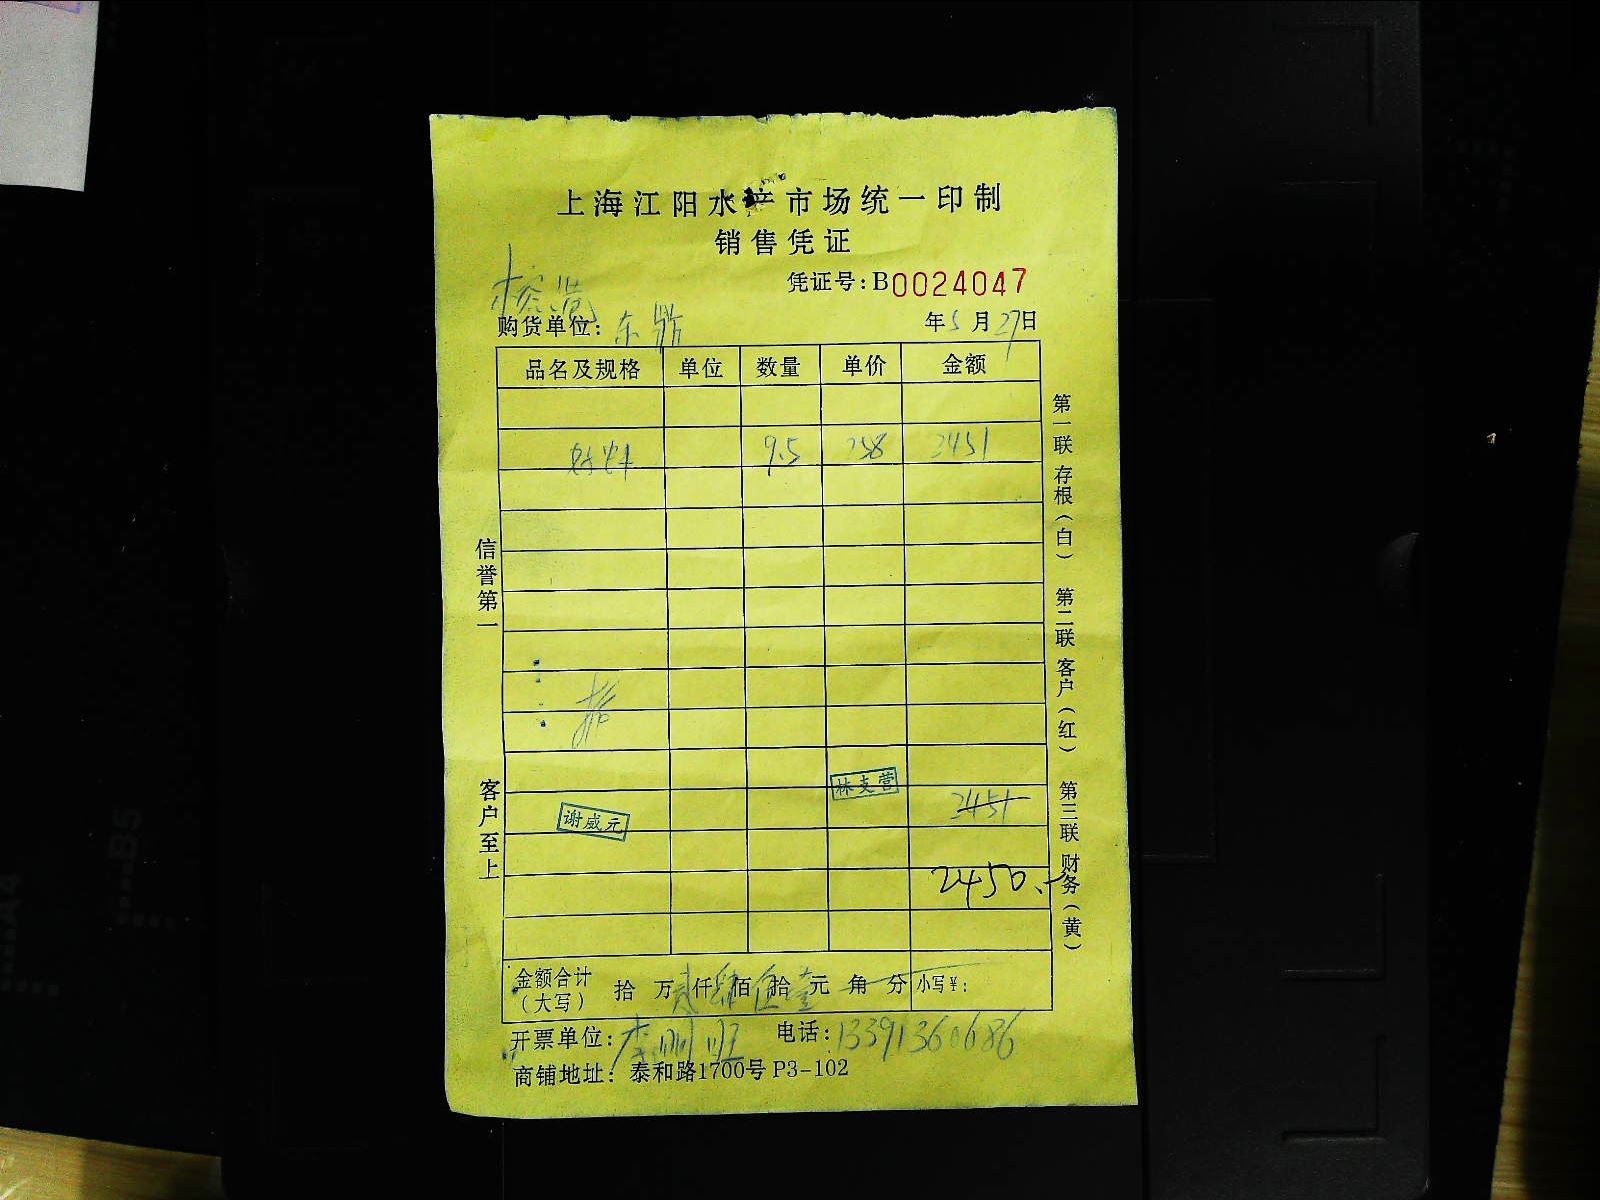 上海江阳水产市场统一印制
销售凭证
凭证号：B0024047
购货单位：东鼎
年5月27日
品名及规格 单位 数量 单价 金额
9.5 258 2451
林支营
2451
谢威元
2450.-
金额合计（大写） 拾 万 贰 仟 肆 佰 伍 拾 壹 元 角 分 小写￥：
开票单位： 电话：13391360686
商铺地址：泰和路1700号 P3-102
信誉第一
客户至上
第一联 存根（白） 第二联 客户（红） 第三联 财务（黄）